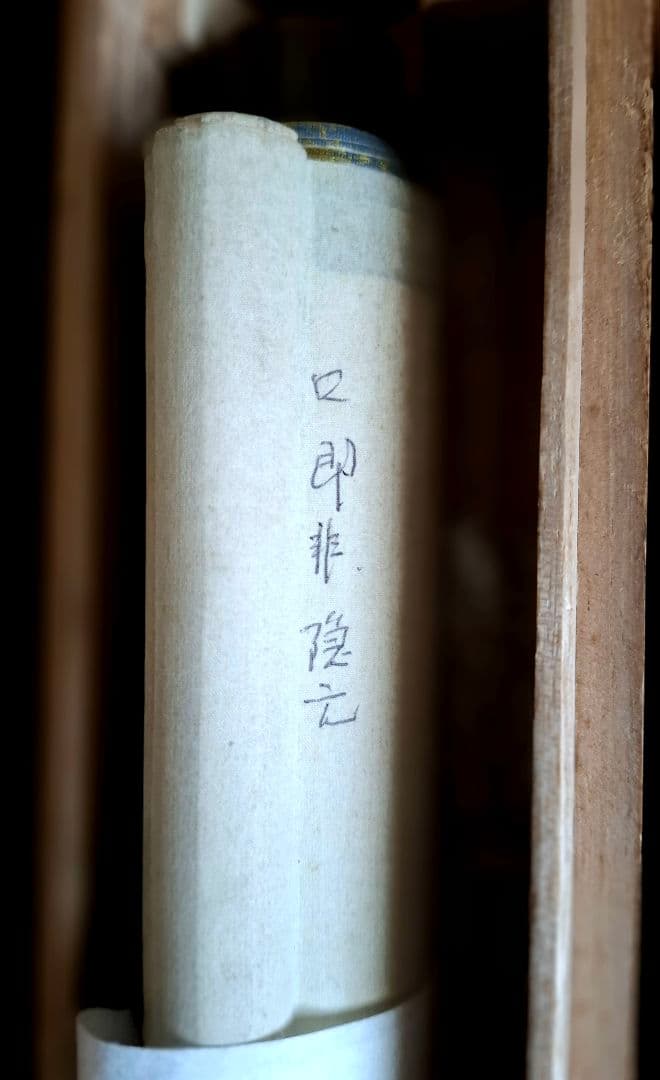 口即非隠元